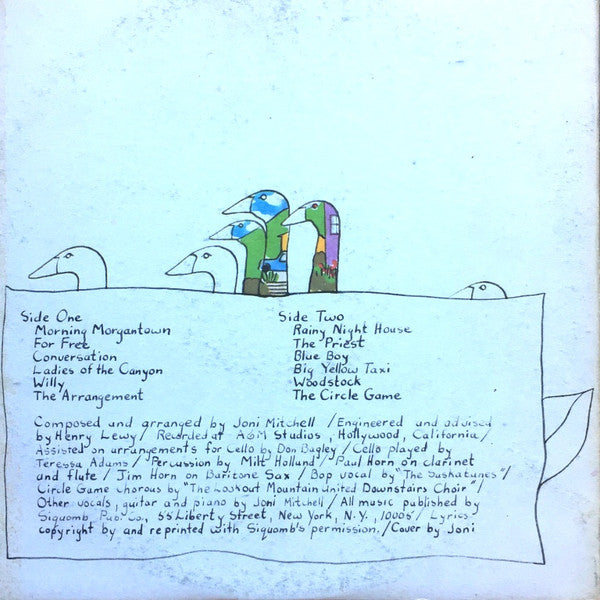 Side One
Morning Morgantown
For Free
Conversation
Ladies of the Canyon
Willy
The Arrangement
Side Two
Rainy Night House
The Priest
Blue Boy
Big Yellow Taxi
Woodstock
The Circle Game
Composed and arranged by Joni Mitchell / Engineered and advised
by Henry Lewy / Recorded at A&M Studios, Hollywood, California /
Assisted on arrangements for Cello by Don Bagley / Cello played by
Teressa Adams / Percussion by Milt Holland / Paul Horn on clarinet
and flute / Jim Horn on Baritone Sax / Bop vocal by "The Saskatunes" /
Circle Game chorous by "The Lookout Mountain United Downstairs Choir" /
Other vocals, guitar and piano by Joni Mitchell / All music published by
Siquomb Pub. Co., 55 Liberty Street, New York, N.Y., 10005 / Lyrics
copyright by and reprinted with Siquomb's permission. / Cover by Joni